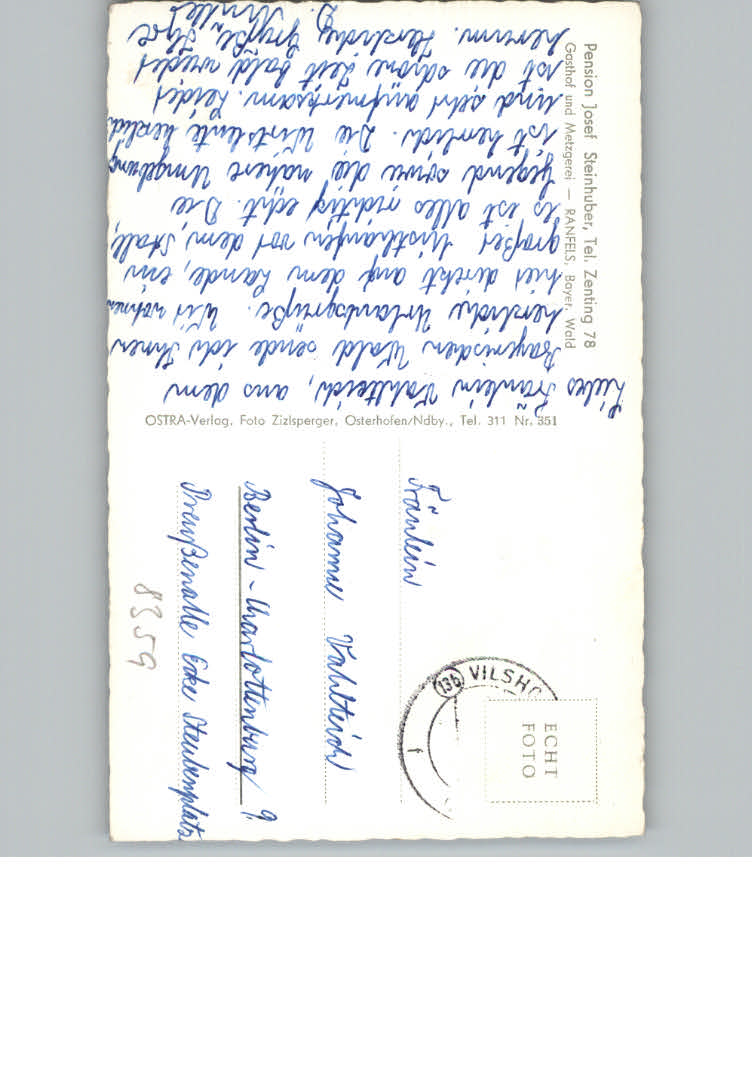 Pension Josef Steinhuber, Tel. Zenting 78
Gasthof und Metzgerei — RANFELS, Bayer. Wald
Liebes Fräulein Vahlteich, aus dem
Bayrischen Wald sende ich Ihnen
herzliche Urlaubsgrüße. Wir wohnen
hier direkt auf dem Lande, ein
großer Misthaufen vor dem Stall,
es ist alles richtig echt. Die
Gegend sowie die nähere Umgebung
ist herrlich. Die Wirtsleute herzlich
und sehr aufmerksam. Leider
ist die schöne Zeit bald wieder
herum. Herzliche Grüße Ihre
D. Müller
OSTRA-Verlag, Foto Zizlsperger, Osterhofen/Ndby., Tel. 311 Nr. 351
ECHT
FOTO
(13b) VILSHO
Fräulein
Johanne Vahlteich
Berlin-Charlottenburg 9.
Preußenalle Ecke Steubenplatz
8359